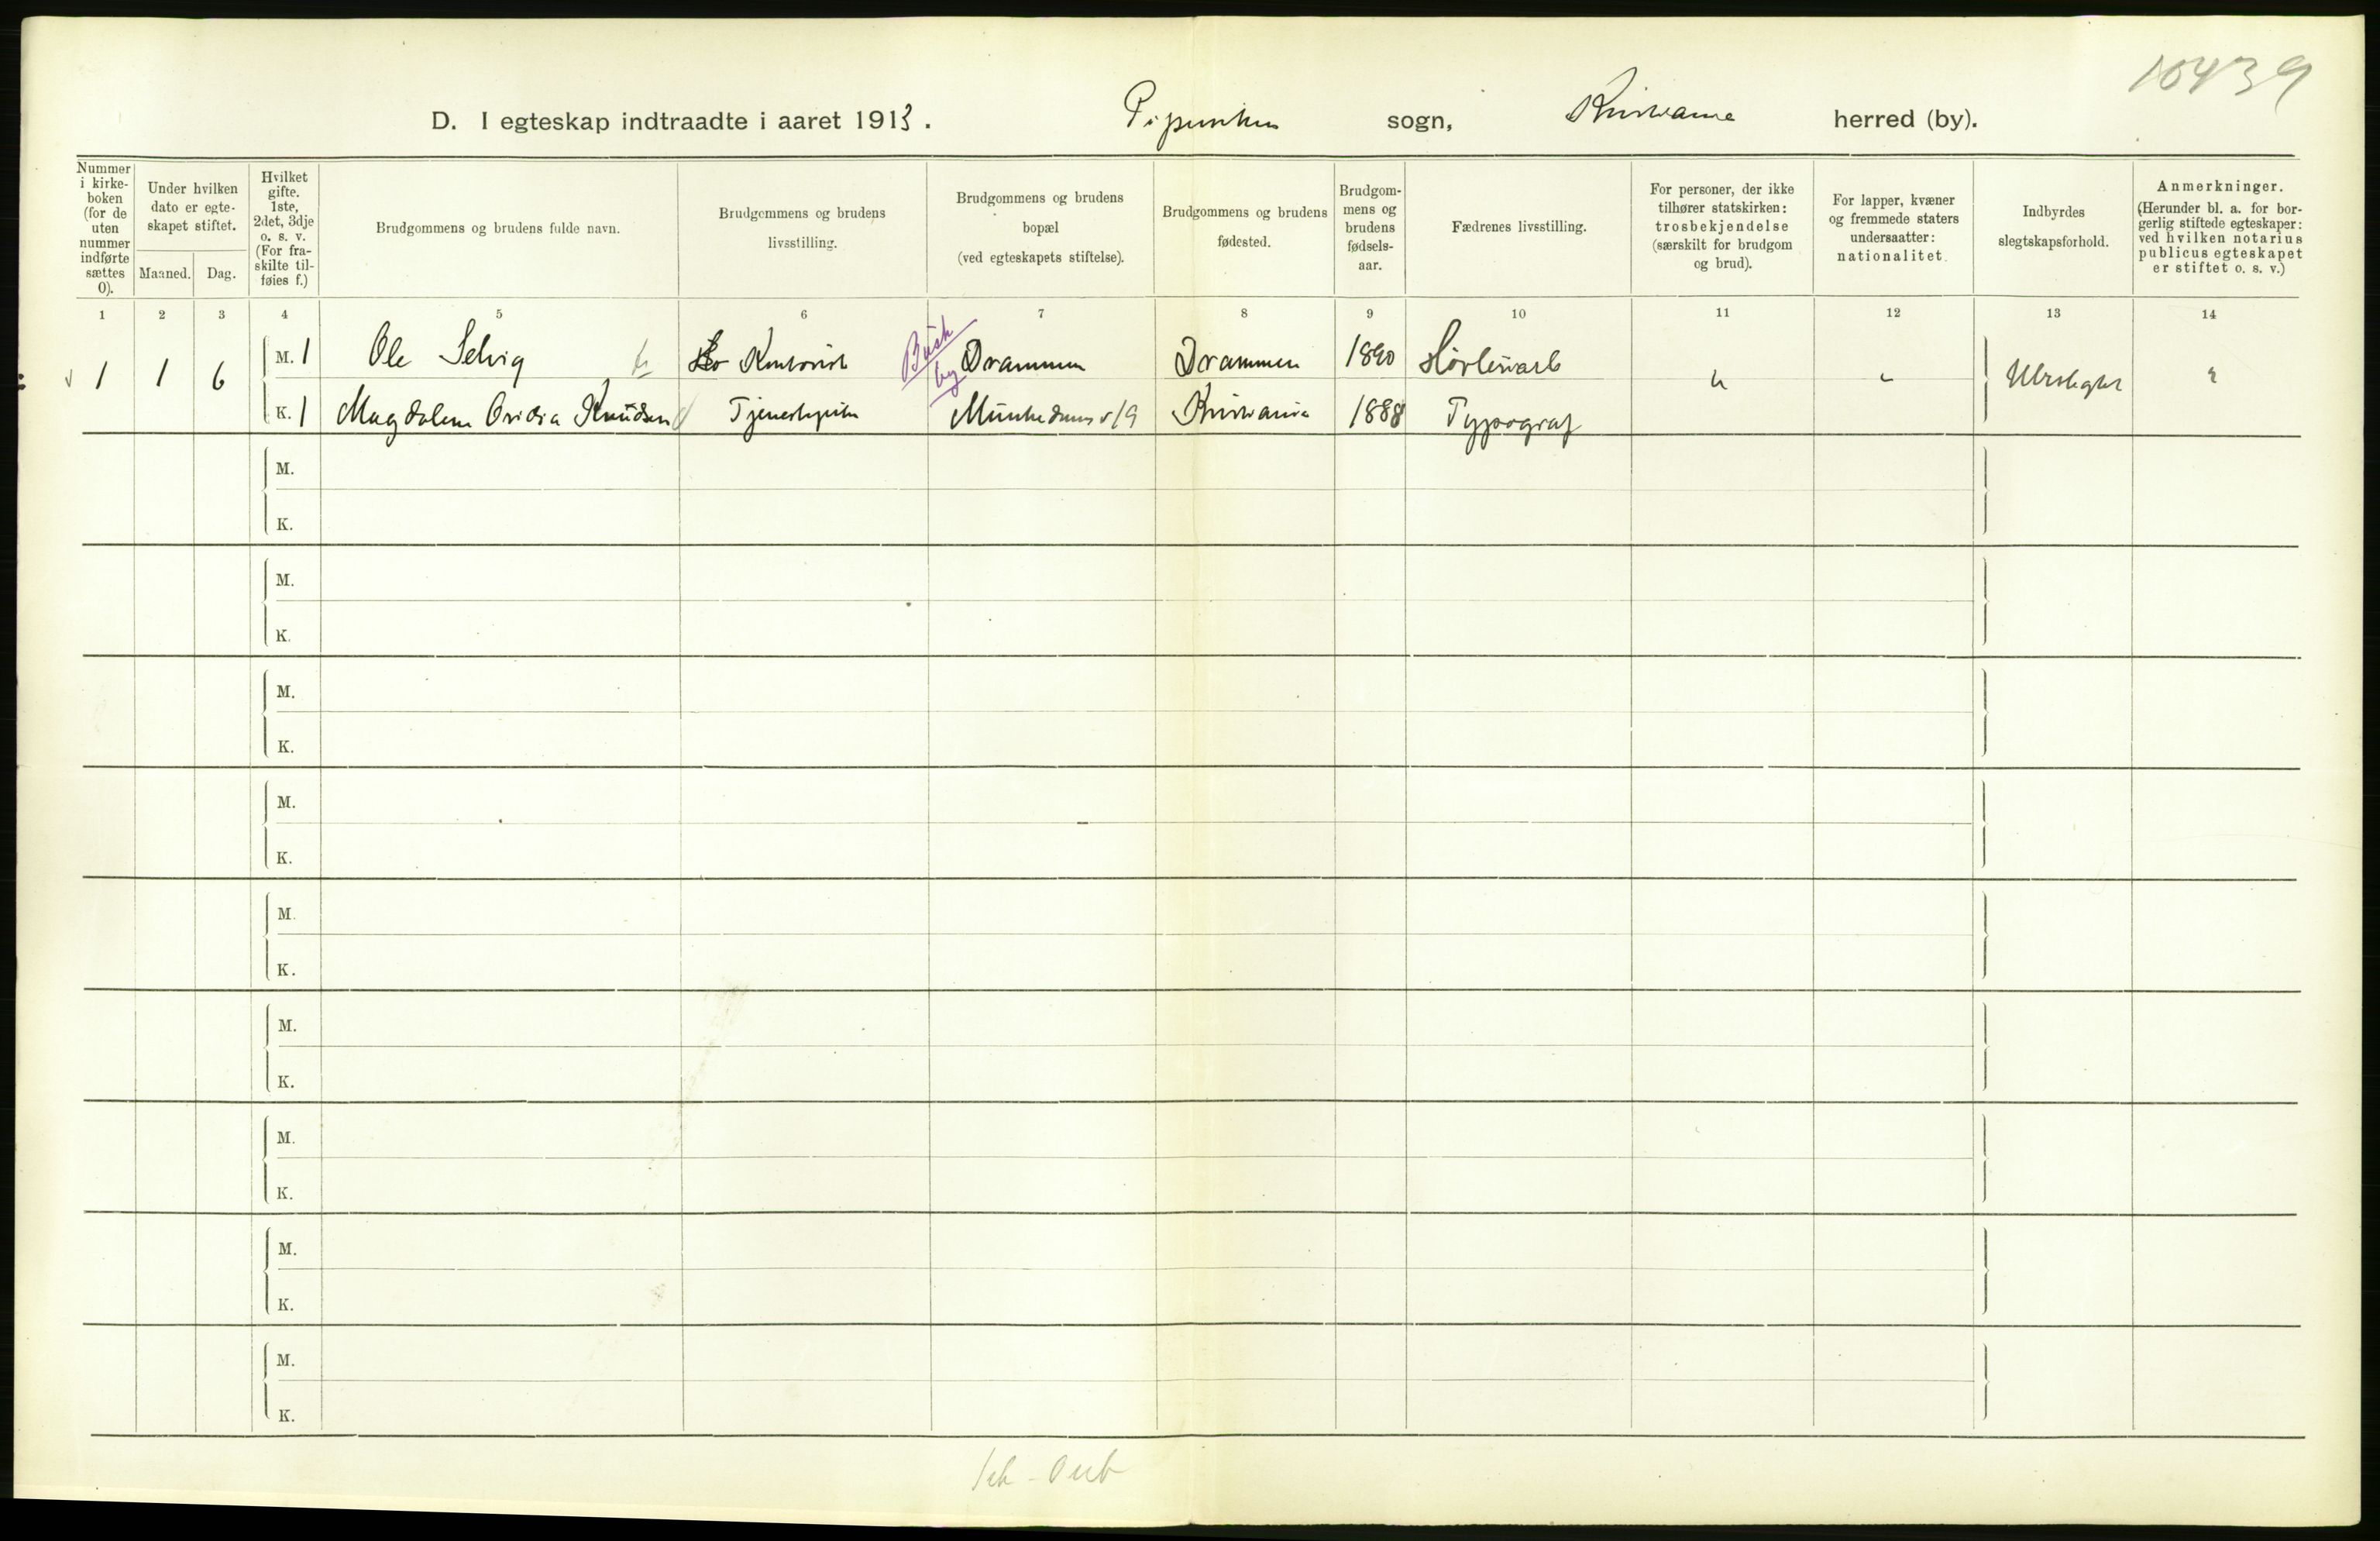 10439
D. I egteskap indtraadte i aaret 1913. sogn, Kristiania herred (by).
Nummer i kirke-boken (for de uten nummer indførte sættes 0).
Under hvilken dato er egte-skapet stiftet.
Maaned. Dag.
Hvilket gifte. 1ste, 2det, 3dje o. s. v. (For fra-skilte til-føies f.)
Brudgommens og brudens fulde navn.
Brudgommens og brudens livsstilling.
Brudgommens og brudens bopæl (ved egteskapets stiftelse).
Brudgommens og brudens fødested.
Brudgom-mens og brudens fødsels-aar.
Fædrenes livsstilling.
For personer, der ikke tilhører statskirken: trosbekjendelse (særskilt for brudgom og brud).
For lapper, kvæner og fremmede staters undersaatter: nationalitet.
Indbyrdes slegtskapsforhold.
Anmerkninger. (Herunder bl. a. for bor-gerlig stiftede egteskaper: ved hvilken notarius publicus egteskapet er stiftet o. s. v.)
1 2 3 4 5 6 7 8 9 10 11 12 13 14
Busk
by
1 1 6 M. 1 Ole Selvig Kontorist Drammen Drammen 1890 Høvleriarb " " Ubeslegtet "
K. 1 Magdalene Ovidia Knudsen Tjenestepike Munkedamsv 19 Kristiania 1888 Typograf
M.
K.
M.
K.
M.
K.
M.
K.
M.
K.
M.
K.
M.
K.
M.
K.
M.
K.